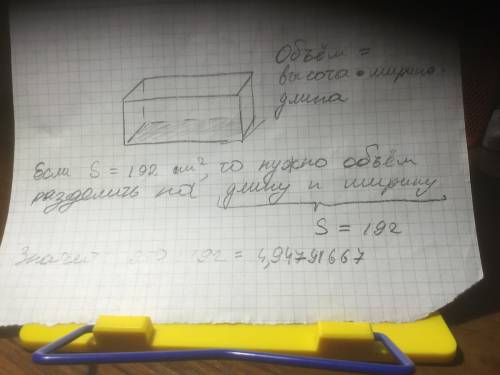 Объём =
высота • ширина •
длина
Если S = 192 см², то нужно объём
разделить на длину и ширину
S = 192
Значит 192 = 4,94791667